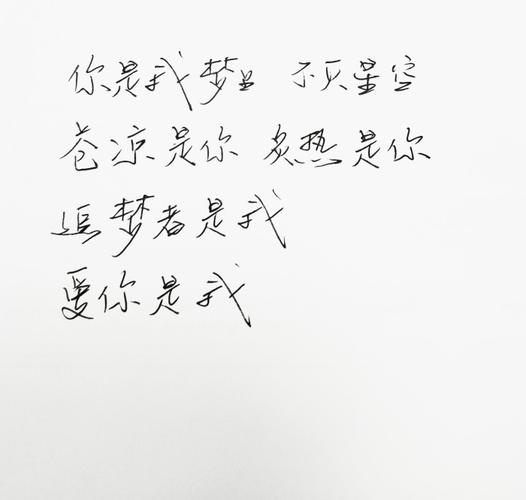 你是我梦里 不见星空
苍凉是你 炙热是你
追梦者是我
爱你是我